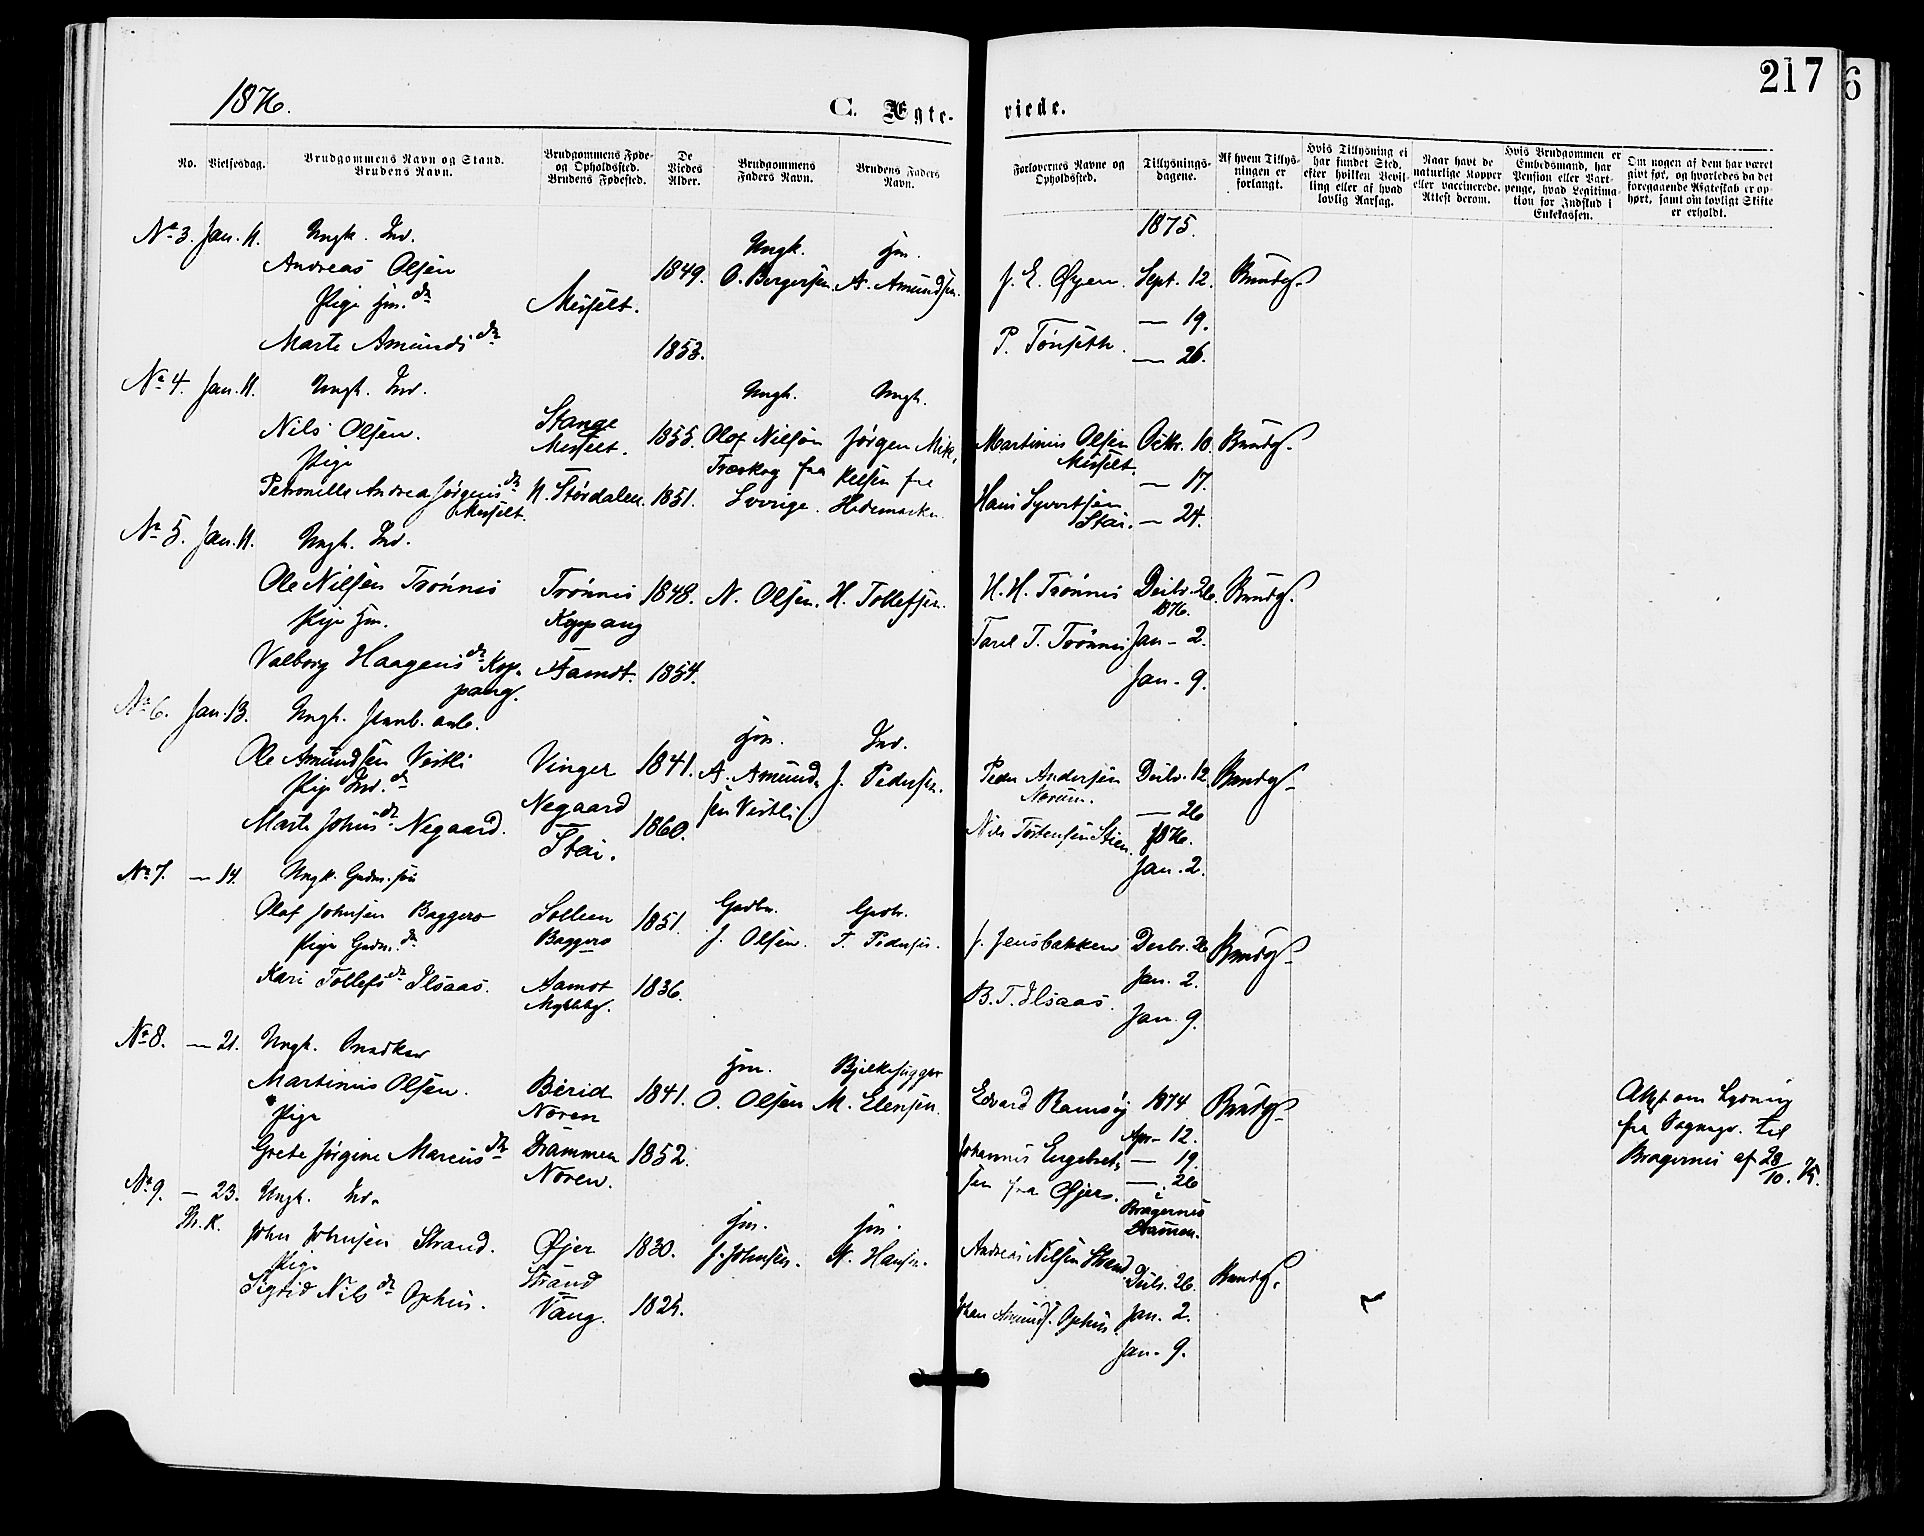 217
6
1876.
C. Ægte-
viede.
No.
Vielsesdag.
Brudgommens Navn og Stand.
Brudens Navn.
Brudgommens Føde-
og Opholdssted.
Brudens Fødested.
De
Viedes
Alder.
Brudgommens
Faders Navn.
Brudens Faders
Navn.
Forlovernes Navne og
Opholdssted.
Tillysnings-
dagene.
Af hvem Tillys-
ningen er
forlangt.
Hvis Tillysning ei
har fundet Sted,
efter hvilken Bevil-
ling eller af hvad
lovlig Aarsag.
Naar havt de
naturlige Kopper
eller vaccinerede.
Attest derom.
Hvis Brudgommen er
Embedsmand, har
Pension eller Vart-
penge, hvad Legitima-
tion for Indskud i
Enkekassen.
Om nogen af dem har været
givt før, og hvorledes da det
foregaaende Ægteskab er op-
hørt, samt om lovligt Skifte
er erholdt.
No 3. Jan. 11. Ungk. Ind.
Andreas Olsen
Pige Hm. dr
Marte Amunds dr
Messelt.
1849.
1853.
Ungk.
O. Bergersen.
Hm.
A. Amundsen.
J. E. Øyen.
P. Tønseth.
1875.
Sept. 12.
— 19.
— 26.
Brudg.
No 4. Jan. 11. Ungk. Ind.
Nils Olsen.
Pige
Petronelle Andrea Jørgens dr
Messelt.
Stange
Messelt.
N. Stördalen
1855.
1851.
Ungk.
Olof Nilson
fra
Sverige.
Ungk.
Jørgen Mik
kelsen fra
Hedemarken
Martinus Olsen
Messelt.
Hans Syvertsen
Stai.
Octbr. 10.
— 17.
— 24.
Brudg.
No 5. Jan. 11. Ungk. Ind.
Ole Nilsen Trønnes
Pige Hm.
Valborg Haagens dr Kop-
pang.
Trønnes
Koppang
Aamot.
1848.
1854.
N. Olsen.
H. Tollefsen.
H. H. Trønnes
T. Trønnes
Decbr. 26.
1876.
Jan - 2.
Jan - 9.
Brudg.
No 6. Jan. 13. Ungk.
Ole Amundsen
Pige Ind. dr
Marte Johns dr Negaard.
Vinger
Negaard
Stai.
1841.
1860.
Hm.
A. Amund-
sen
Ind.
J. Pedersen.
Peder Andersen
Norum.
Nils Torstensen Stien.
Decbr. 12.
— 26
1876.
Jan. 2.
Brudg.
No 7. — 14. Ungk. Gaardm. søn
Olaf Johnsen Baggero
Pige Gaardm. dr
Kari Tollefs dr Ilsaas.
Sollien
Baggero
Aamot
1851.
1836.
Gaardbr.
J. Olsen.
Gaardbr.
T. Pedersen.
J. Jensbakken
B. T. Ilsaas.
Decbr. 26
Jan. 2.
Jan. 9.
Brudg.
No 8. — 21. Ungk. Snedker
Martinus Olsen.
Pige
Grete Jørgine Marcus dr
Biri
Noren
Drammen
Noren.
1841.
1852.
Hm.
O. Olsen
M. Elensen.
Edvard Ramsøy
Johannes Engebret-
sen fra Øjer.
1874
Apr- 12.
— 19.
— 26
i
Bragernes
Drammen.
Brudg.
Attest om Lysning
fra Sognepr. til
Bragernes af 28/10. 75.
No 9. — 23. Ungk. Ind.
St. K.
John Johnsen Strand.
Pige
Sigrid Nils dr Ophus.
Øjer
Strand
Vang.
1830.
1825.
Hm.
J. Johnsen.
Hm.
N. Hansen.
Andreas Nilsen Strand
Johan Amunds. Ophus.
Decbr. 26.
Jan. 2.
Jan. 9.
Brudg.